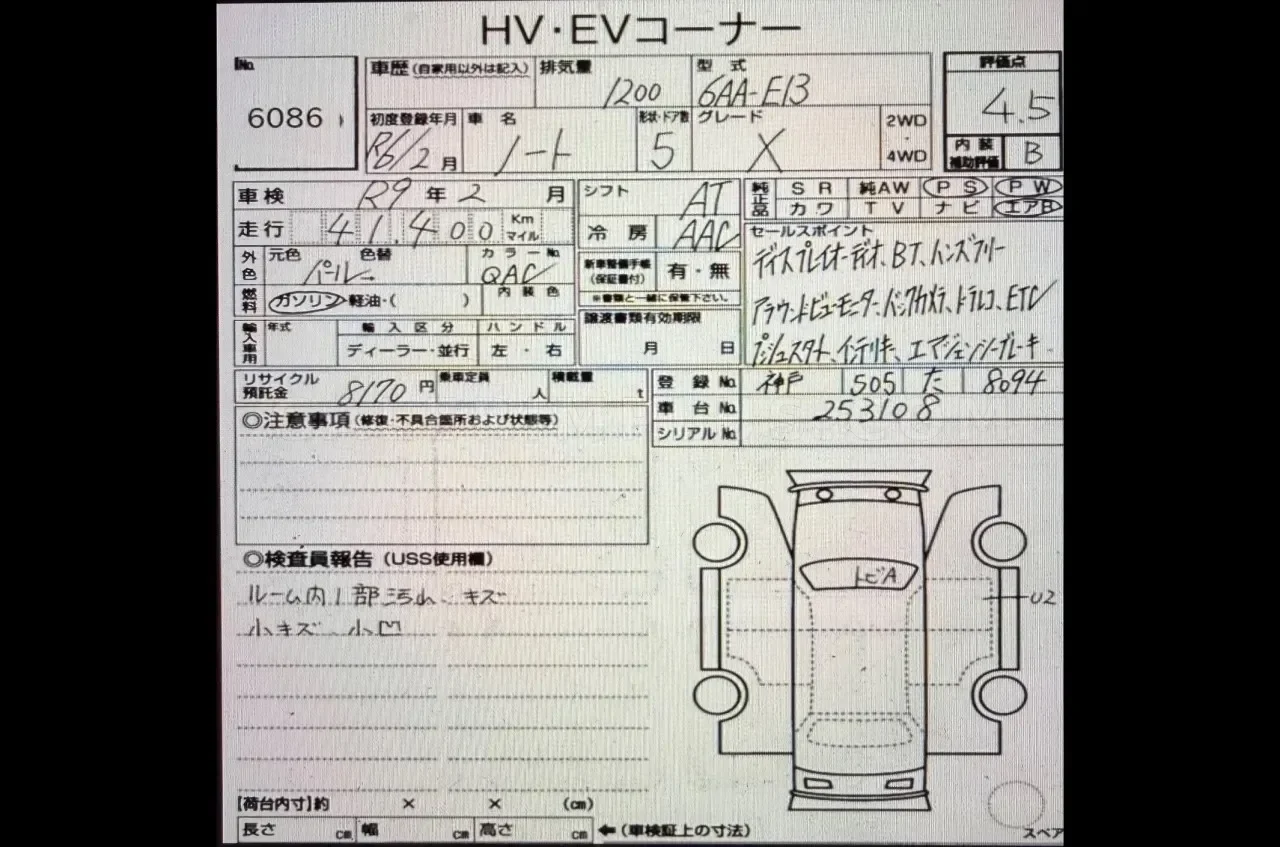 HV・EVコーナー
No. 6086
車歴(自家用以外は記入) 排気量 1200 型式 6AA-E13
評価点 4.5
初度登録年月 R6/2月 車名 ノート 形状・ドア数 5 グレード X 2WD・4WD
内装補助評価 B
車検 R9年2月
シフト AT
純正品 SR 純AW PS PW
カワ TV ナビ エアB
走行 41,400 Km マイル
冷房 AAC
セールスポイント
ディスプレイオーディオ、BT、ハンズフリー
アラウンドビューモニター、バックカメラ、ドラレコ、ETC
プッシュスタート、インテリキー、エマージェンシーブレーキ
外色 元色 パール 色替 カラーNo. QAC
新車整備手帳(保証書付) 有・無
※書類と一緒に保管下さい。
燃料 ガソリン・軽油・( ) 内装色
譲渡書類有効期限 月 日
輸入車用 年式 輸入区分 ディーラー・並行 ハンドル 左・右
リサイクル預託金 8170円 乗車定員 人 積載量 t
登録No. 神戸 505 た 8094
車台No. 253108
シリアルNo.
◎注意事項(修復・不具合箇所および状態等)
◎検査員報告(USS使用欄)
ルーム内1部汚れ、キズ
小キズ、小凹
トビA
U2
【荷台内寸】約 × × (cm)
長さ cm 幅 cm 高さ cm ←(車検証上の寸法)
スペア